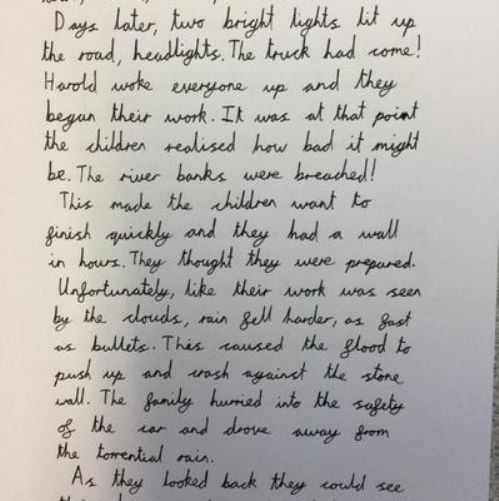 Days later, two bright lights lit up
the road, headlights. The truck had come!
Harold woke everyone up and they
began their work. It was at that point
the children realised how bad it might
be. The river banks were breached!
This made the children want to
finish quickly and they had a wall
in hours. They thought they were prepared.
Unfortunately, like their work was seen
by the clouds, rain fell harder, as fast
as bullets. This caused the flood to
push up and crash against the stone
wall. The family hurried into the safety
of the car and drove away from
the torrential rain.
As they looked back they could see